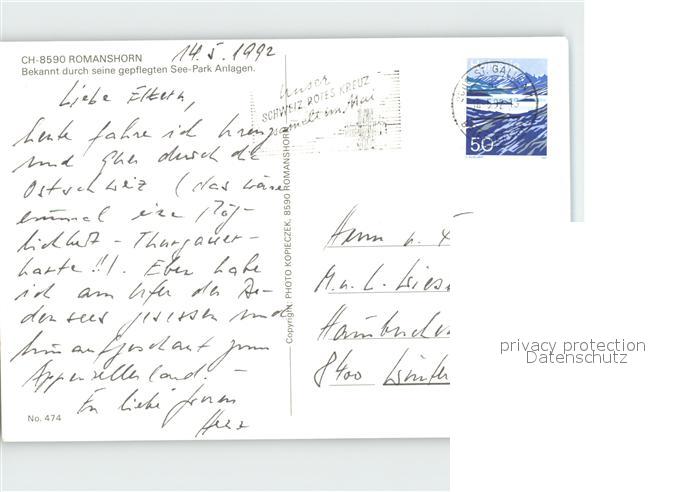 14.5.1992
CH-8590 ROMANSHORN
Bekannt durch seine gepflegten See-Park Anlagen.
Liebe Eltern,
heute fahre ich kreuz
und quer durch die
Ostschweiz (das wäre
einmal eine Mög-
lichkeit - Thurgauer-
karte!!!). Eben habe
ich am Ufer des Bo-
densees gesessen und
hinaufgeschaut zum
Appenzellerland. -
En liebe
No. 474
Copyright: PHOTO KOPIECZEK, 8590 ROMANSHORN
unser
SCHWEIZ ROTES KREUZ
sammelt im Mai
ST. GALLEN
50
Herrn u.
M. u. L. Wies
8400 Winter
privacy protection
Datenschutz